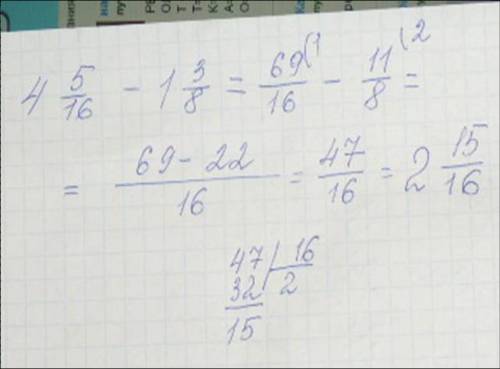 4 5/16 - 1 3/8 = 69/16 (1 - 11/8 (2 =
= 69-22/16 = 47/16 = 2 15/16
47 | 16
32 | 2
15